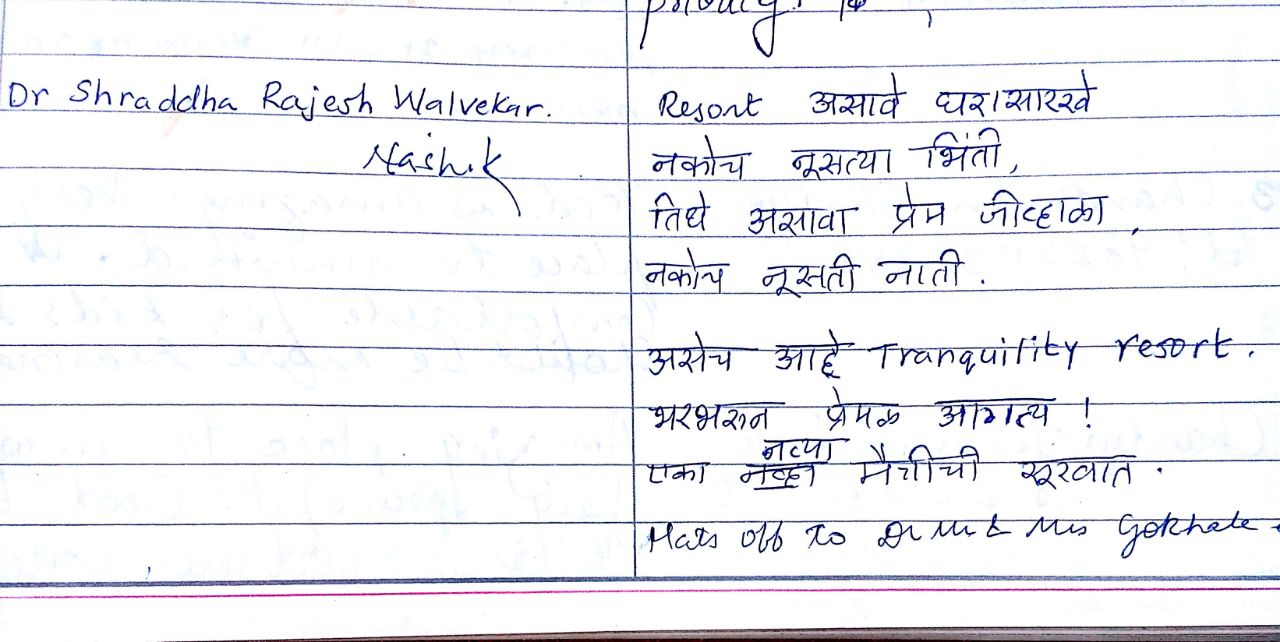 Dr Shraddha Rajesh Walvekar.
Nashik
Resort असावे घरासारखे
नकोच नूसत्या भिंती,
तिथे असावा प्रेम जीव्हाळा,
नकोच नूसती नाती.
असेच आहे Tranquility resort.
भरभरून प्रेमळ आगत्य!
नव्या
एका नव्हा मैत्रीची सूरवात.
Hats off to Dr Mr & Mrs Gokhale